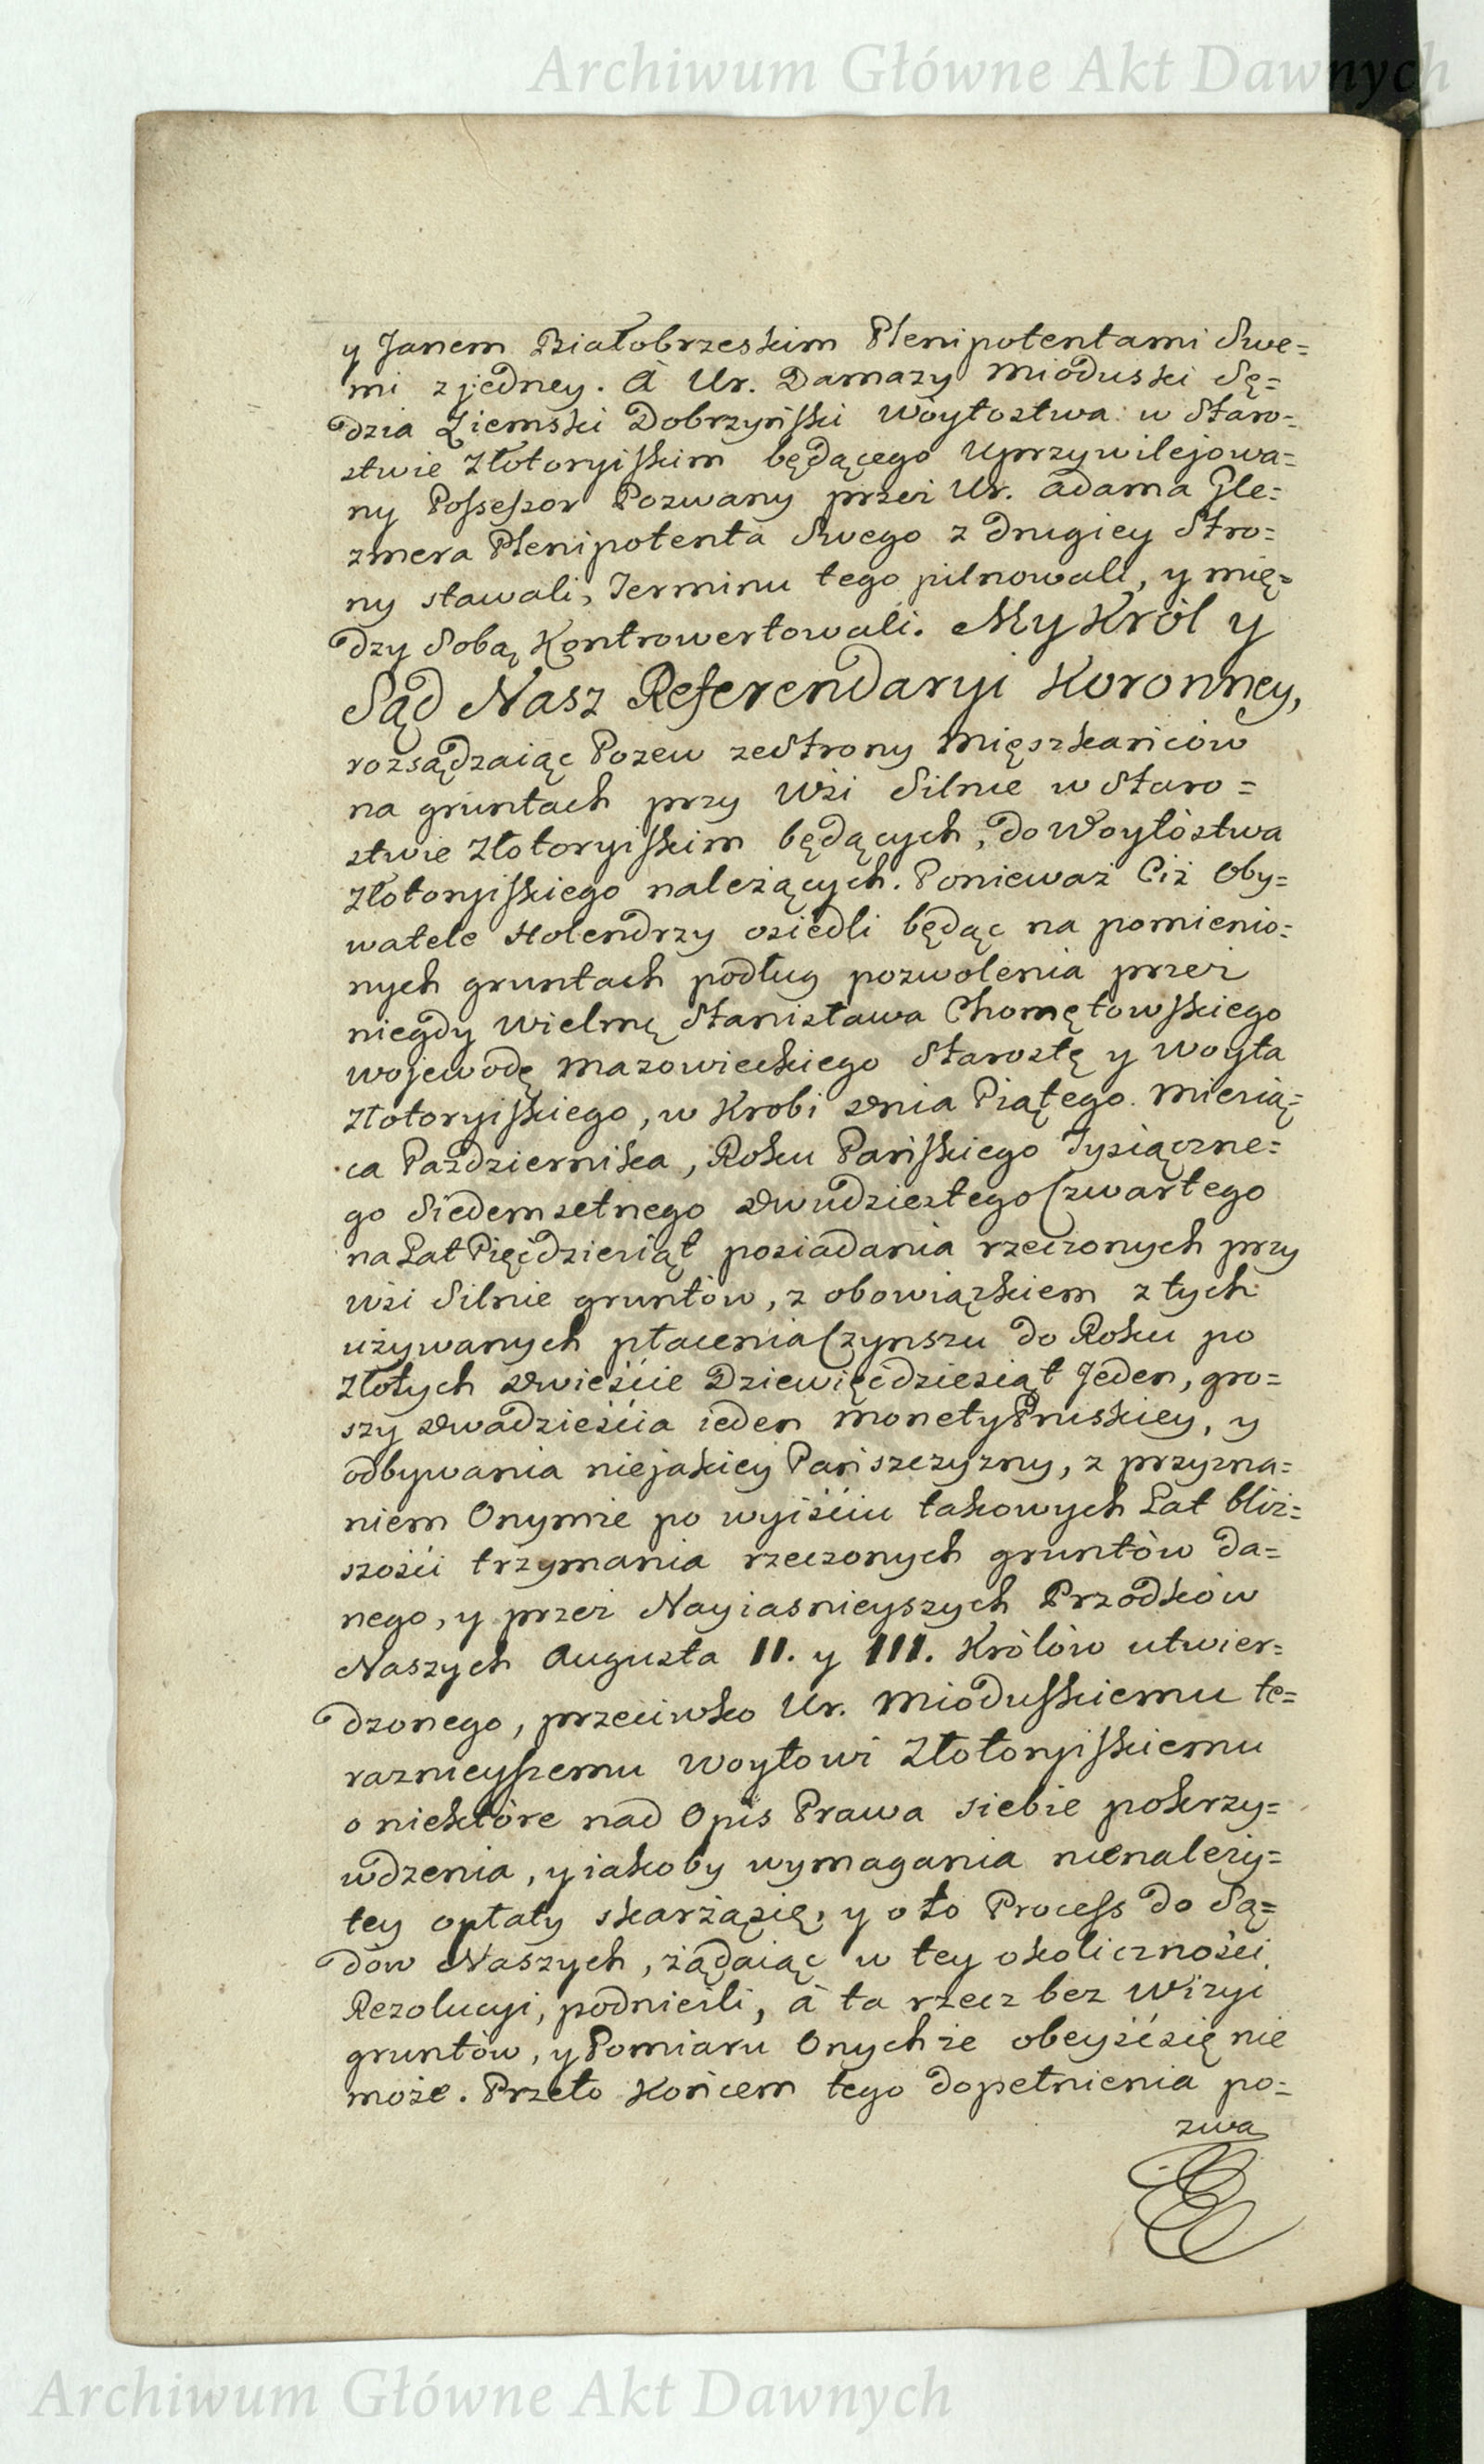 Archiwum Główne Akt Dawnych
y Janem Białobrzeskim Plenipotentami Swe=
mi z jedney. A Ur. Damazy Mioduski Sę=
dzia Ziemski Dobrzyński Woytostwa w Staro=
stwie Złotoryiskim będącego Uprzywilejowa=
ny Possessor Pozwany przez Ur. Adama Gle=
zmera Plenipotenta Swego z drugiey Stro=
ny stawali, Terminu tego pilnowali, y mię=
dzy Sobą Kontrowertowali. My Król y
Sąd Nasz Referendaryi Koronney,
rozsądzaiąc Pozew ze Strony Mięszkańców
na gruntach przy Wsi Silnie w Staro=
stwie Złotoryiskim będących, do Woytóstwa
Złotoryiskiego należących. Ponieważ Ciż Oby=
watele Holendrzy osiedli będąc na pomienio=
nych gruntach podług pozwolenia przez
niegdy Wielmę Stanisława Chomętowskiego
Wojewodę Mazowieckiego Starostę y Woyta
Złotoryiskiego, w Krobi dnia Piątego Miesią=
ca Października, Roku Pańskiego Tysiączne=
go Siedemsetnego dwudziestego Czwartego
na Lat Pięćdziesiąt posiadania rzeczonych przy
Wsi Silnie gruntów, z obowiązkiem z tych
używanych płacenia Czynszu do Roku po
Złotych dwieście Dziewięćdziesiąt Jeden, gro=
szy dwadzieścia ieden Monety Pruskiey, y
odbywania niejakiey Pańszczyzny, z przyzna=
niem Onymże po wyiściu takowych Lat bliż=
szości trzymania rzeczonych gruntów da=
nego, y przez Nayiasnieyszych Przodków
Naszych Augusta II. y III. Królów utwier=
dzonego, przeciwko Ur. Mioduskiemu te=
raznieyszemu Woytowi Złotoryiskiemu
o niektóre nad Opis Prawa siebie pokrzy=
wdzenia, y iakoby wymagania nienależy=
tey opłaty skarżąsię, y oto Process do Są=
dów Naszych, żądaiąc w tey okoliczności
Rezolucyi, podnieśli, á ta rzecz bez Wizyi
gruntów, y Pomiaru Onychże obeyśćsię nie
może. Przeto Końcem tego dopełnienia po=
zwa
Archiwum Główne Akt Dawnych